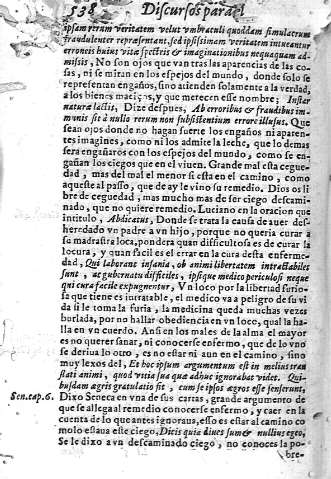 538 Discursos para el
ipsam rerum veritatem velut vmbraculi quoddam simulacrum
fraudulenter representant, sed ipsissimam veritatem intueantur
erroneis huius vitæ spectris & imaginationibus nequaquam ad-
missis, No son ojos que van tras las aparencias de las co-
sas, ni se miran en los espejos del mundo, donde solo se
representan engaños, sino atienden solamente a la verdad,
a los bienes maciços, y que merecen esse nombre; Instar
natura lactis, Dize despues, Ab erroribus & fraudibus im-
munis sit à nulla rerum non subsistentium errore illusus. Que
sean ojos donde no hagan suerte los engaños ni aparen-
tes imagines, como ni los admite la leche, que lo demas
sera engañaros con los espejos del mundo, como se en-
gañan los ciegos que en el viuen. Grande mal esta cegue-
dad, mas del mal el menor si esta en el camino, como
aqueste al passo, que de ay le vino su remedio. Dios os li-
bre de ceguedad, mas mucho mas de ser ciego descami-
nado, que no quiere remedio. Luciano en la oracion que
intitulo, Abdicatus, Donde se trata la causa de auer des-
heredado vn padre a vn hijo, porque no queria curar a
su madrastra loca, pondera quan difficultosa es de curar la
locura, y quan facil es el errar en la cura desta enferme-
dad, Qui laborant insania, ob animi libertatem intractabiles
sunt, ac gubernatu difficiles, ipsique medico periculosi neque
qui cura facile expugnentur, Vn loco por la libertad furio-
sa que tiene es intratable, el medico va a peligro de su vi-
da si le toma la furia, la medicina queda muchas vezes
burlada, por no hallar obediencia en vn loco, qual la ha-
lla en vn cuerdo. Ansi en los males de la alma el mayor
es no querer sanar, ni conocerse enfermo, que de lo vno
se deriua lo otro, es no estar ni aun en el camino, sino
muy lexos del, Et hoc ipsum argumentum est in melius tran-
slati animi, quod vitia sua quæ adhuc ignorabat videt. Qui-
busdam ægris gratulatio fit, cum se ipsos ægros esse senserunt.
Sen.cap.6. Dixo Seneca en vna de sus cartas, grande argumento de
que se allega al remedio conocerse enfermo, y caer en la
cuenta de lo que antes ignoraua, esso es estar al camino co
mo lo estaua este ciego, Dicis quia diues sum & nullius egeo,
Se le dixo a vn descaminado ciego, no conoces la po-
bre-